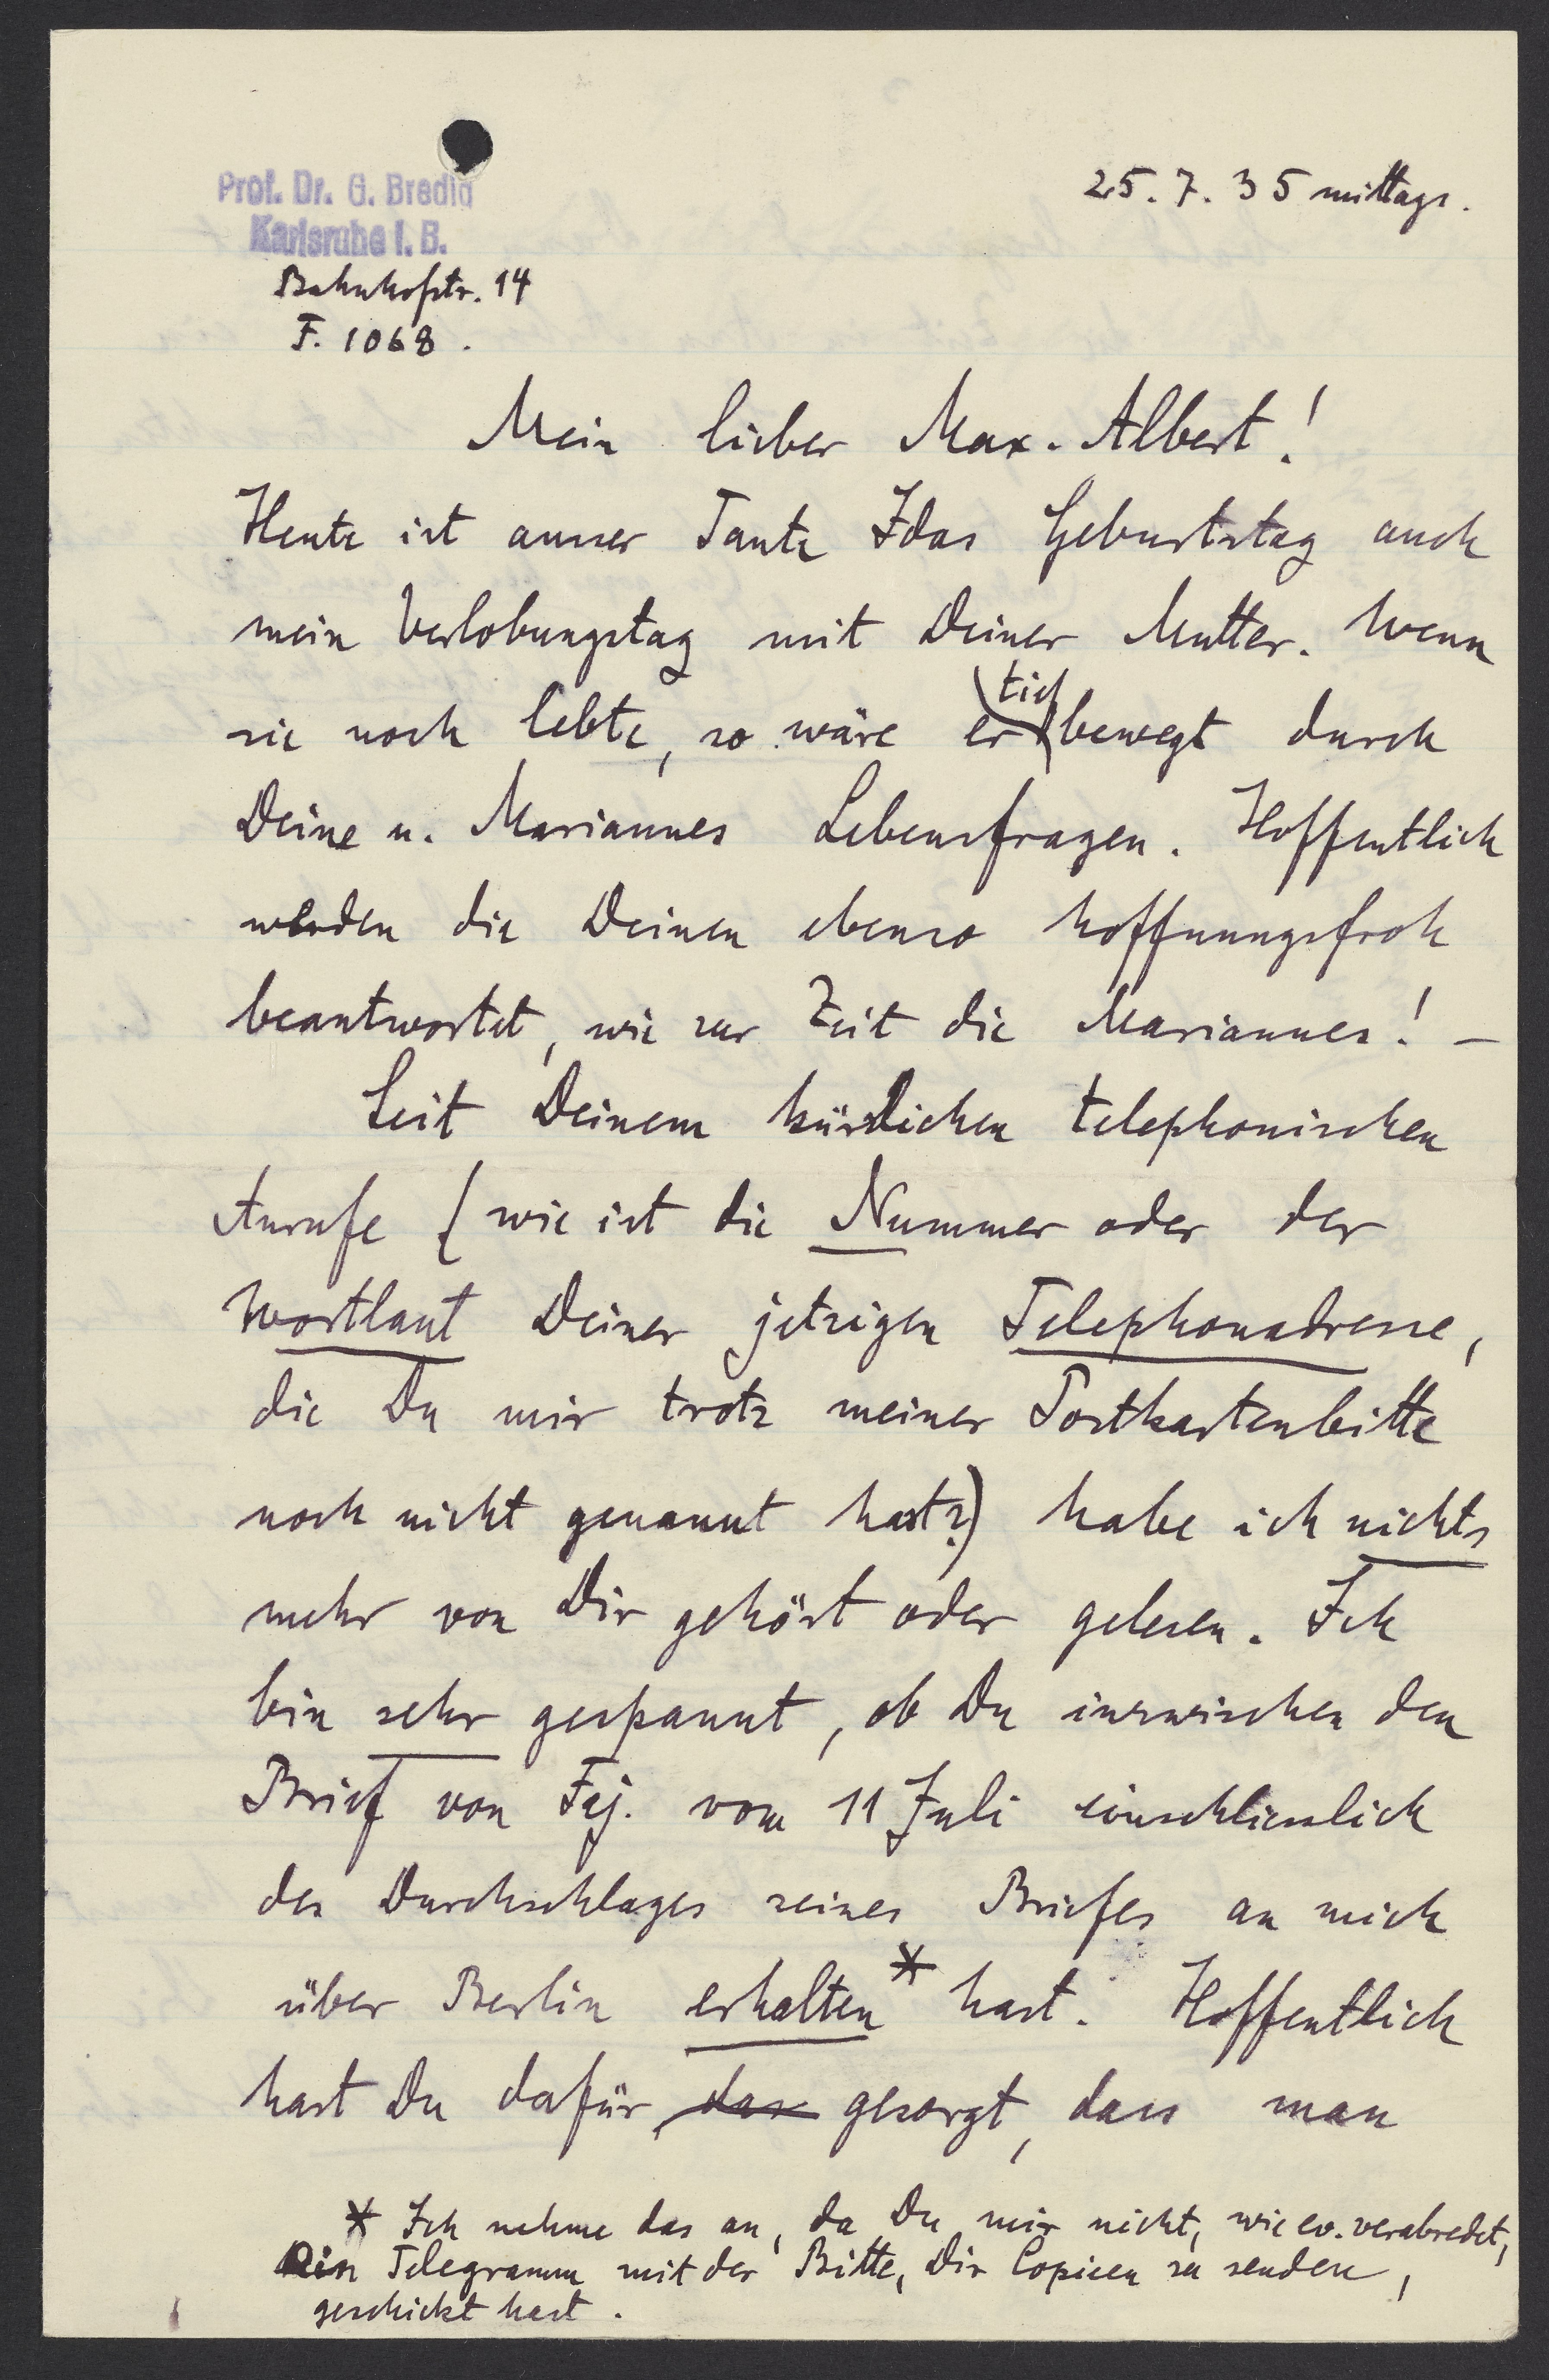 Prof. Dr. G. Bredig
Karlsruhe i. B.
Bahnhofstr. 14
F. 1068.
25. 7. 35 mittags.
Mein lieber Max-Albert!
Heute ist ausser Tante Idas Geburtstag auch
mein Verlobungstag mit Deiner Mutter. Wenn
sie noch lebte, so wäre sie tief bewegt durch
Deine u. Mariannes Lebensfragen. Hoffentlich
werden die Deinen ebenso hoffnungsfroh
beantwortet, wie zur Zeit die Mariannes! –
Seit Deinem kürzlichen telephonischen
Anrufe (wie ist die Nummer oder der
Wortlaut Deiner jetzigen Telephonadresse,
die Du mir trotz meiner Postkartenbitte
noch nicht genannt hast?) habe ich nichts
mehr von Dir gehört oder gelesen. Ich
bin sehr gespannt, ob Du inzwischen den
Brief von Faj. vom 11 Juli einschliesslich
des Durchschlages seines Briefes an mich
über Berlin erhalten* hast. Hoffentlich
hast Du dafür, das gesorgt, dass man
* Ich nehme das an, da Du mir nicht, wie ev. verabredet,
ein Telegramm mit der Bitte, Dir Copieen zu senden,
geschickt hast.